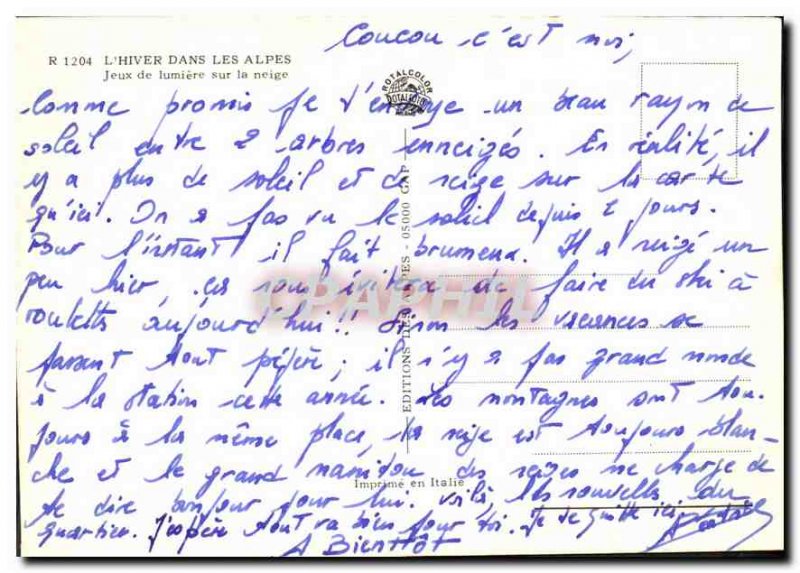 Coucou c'est moi,
R 1204 L'HIVER DANS LES ALPES
Jeux de lumière sur la neige
ROTALCOLOR
Comme promis je t'envoye un beau rayon de
soleil entre 2 arbres enneigés. En réalité, il
y a plus de soleil et de neige sur la carte
qu'ici. On a pas vu le soleil depuis 2 jours.
Pour l'instant il fait brumeux. Il a neigé un
peu hier, ça nous évitera de faire du ski à
roulettes aujourd'hui!! Sinon les vacances se
passent tout pépère; il n'y a pas grand monde
à la station cette année. Les montagnes sont tou-
jours à la même place, la neige est toujours blan-
che et le grand manitou des neiges me charge de
te dire bonjour pour lui. Voilà les nouvelles du
quartier. J'espère tout va bien pour toi. Je te quitte ici,
A Bientôt
EDITIONS DES ALPES - 05000 GAP
CPAPHIL
Imprimé en Italie